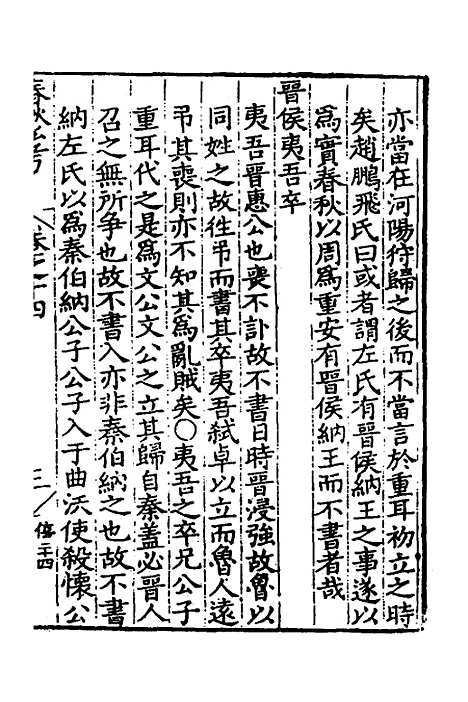 亦當在河陽狩歸之後而不當言於重耳初立之時
矣趙鵬飛氏曰或者謂左氏有晉侯納王之事遂以
爲實春秋以周爲重安有晉侯納王而不書者哉
晉侯夷吾卒
夷吾晉惠公也喪不訃故不書日時晉浸強故魯以
同姓之故徃弔而書其卒夷吾弒卓以立而魯人遠
弔其喪則亦不知其爲亂賊矣○夷吾之卒兄公子
重耳代之是爲文公文公之立其歸自秦蓋必晉人
召之無所爭也故不書入亦非秦伯納之也故不書
納左氏以爲秦伯納公子公子入于曲沃使殺懷公
春秋 卷之十四 三 僖二十四